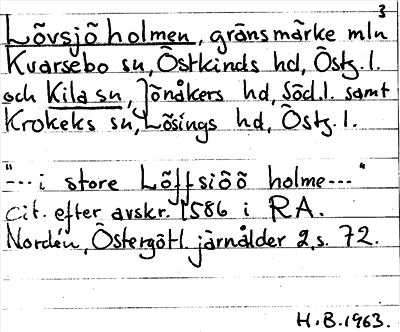 3
Lövsjö holmen, gränsmärke mln
Kvarsebo sn, Östkinds hd, Östg. l.
och Kila sn, Jönåkers hd, Söd. l. samt
Krokeks sn, Lösings hd, Östg. l.
"--- i store Löffsiöö holme---"
cit. efter avskr. 1586 i RA.
Nordén, Östergötl. järnålder 2, s. 72.
H.B. 1963.